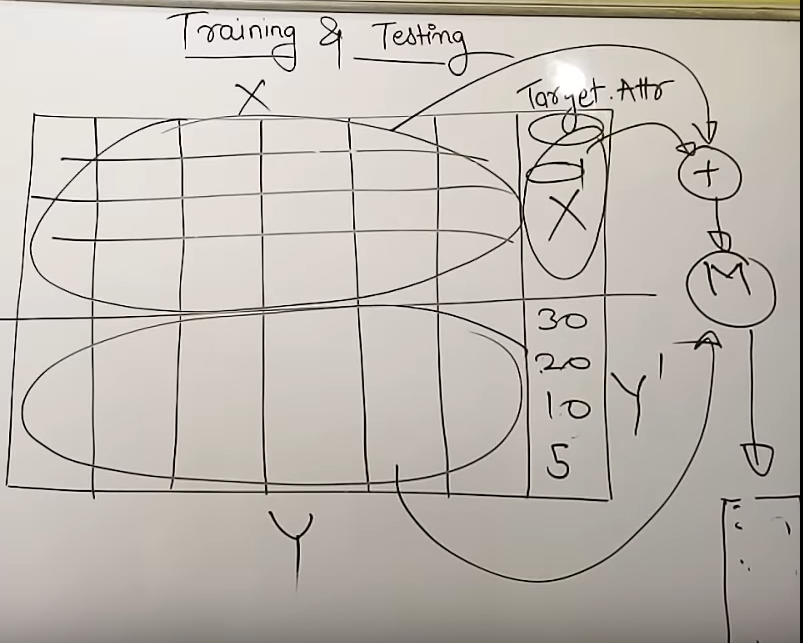 Training & Testing
X
Target.Attr
+
X
M
30
20
10
5
Y'
Y